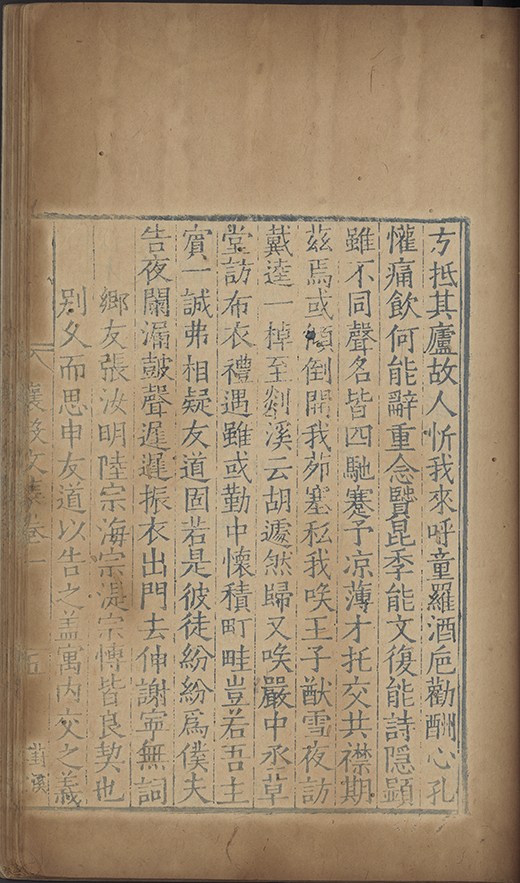 方抵其廬故人忻我來呼童羅酒巵勸酬心孔
懽痛飲何能辭重念賢昆季能文復能詩隱顯
雖不同聲名皆四馳蹇予凉薄才托交共襟期
茲焉或傾倒開我茆塞私我唉王子猷雪夜訪
戴逵一棹至剡溪云胡遽然歸又唉嚴中丞草
堂訪布衣禮遇雖或勤中懷積町畦豈若吾主
賓一誠弗相疑友道固若是彼徒紛紛爲僕夫
告夜闌漏鼓聲遲遲振衣出門去伸謝寧無詞
鄉友張汝明陸宗海宗湜宗愽皆良契也
別久而思申友道以告之盖寓内交之義
文集卷一
五